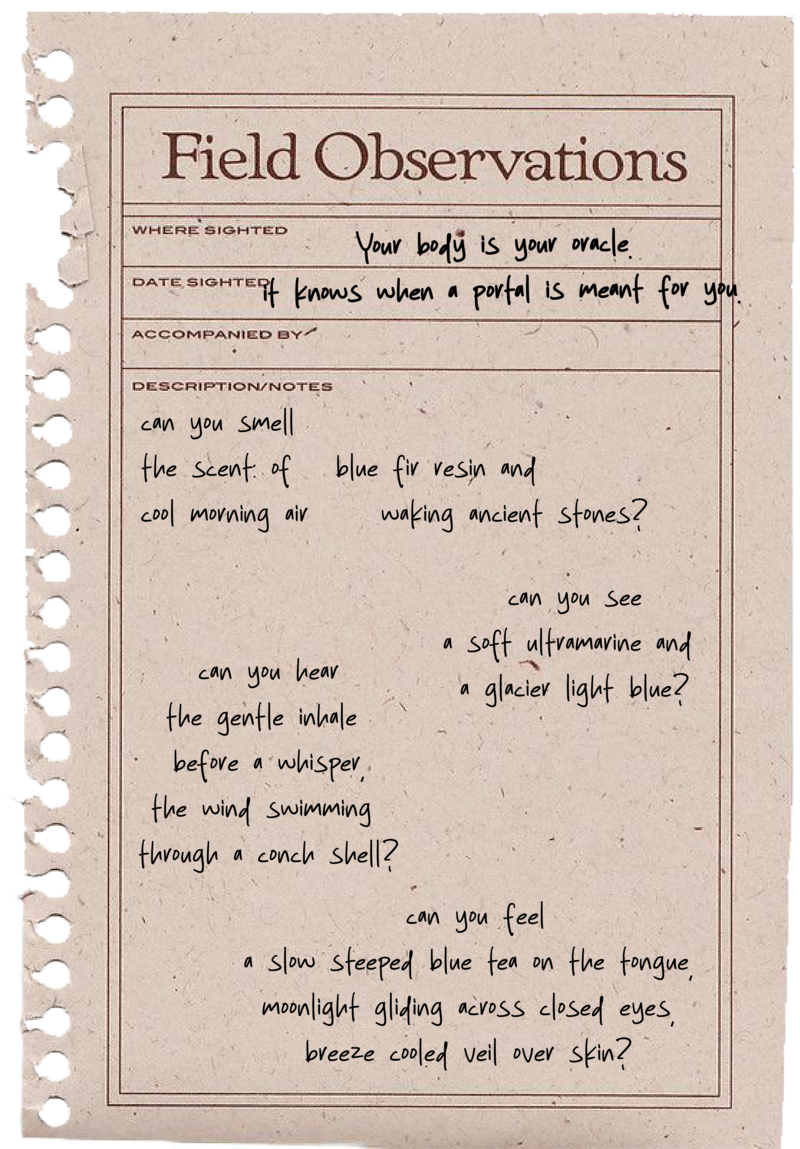 Field Observations
WHERE SIGHTED
Your body is your oracle.
DATE SIGHTED
it knows when a portal is meant for you.
ACCOMPANIED BY
DESCRIPTION/NOTES
can you smell
the scent of blue fir resin and
cool morning air waking ancient stones?
can you see
a soft ultramarine and
a glacier light blue?
can you hear
the gentle inhale
before a whisper,
the wind swimming
through a conch shell?
can you feel
a slow steeped blue tea on the tongue,
moonlight gliding across closed eyes,
breeze cooled veil over skin?